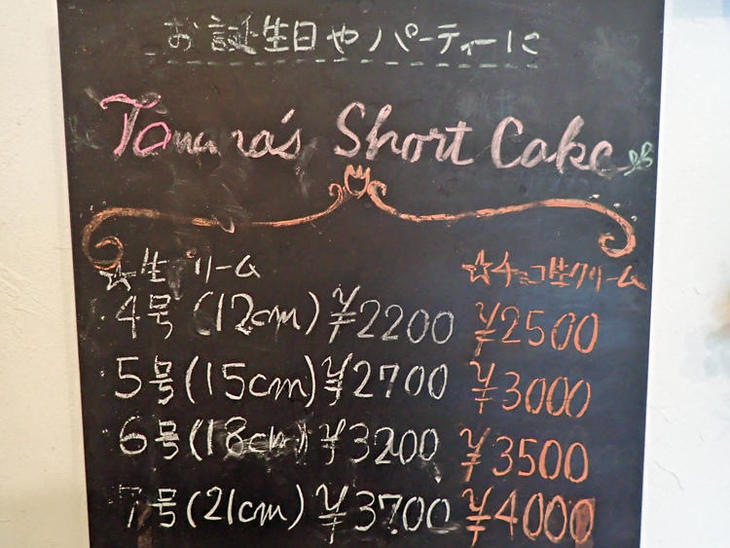 お誕生日やパーティーに
Short Cake
☆生クリーム ☆チョコ生クリーム
4号(12cm)¥2200 ¥2500
5号(15cm)¥2700 ¥3000
6号(18cm)¥3200 ¥3500
7号(21cm)¥3700 ¥4000